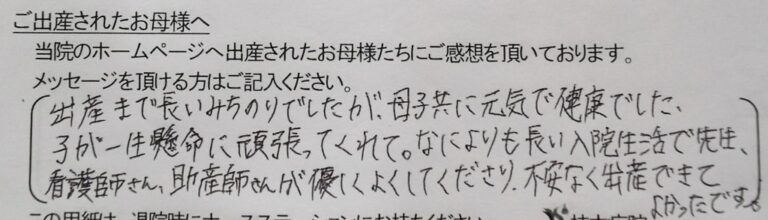 ご出産されたお母様へ
当院のホームページへ出産されたお母様たちにご感想を頂いております。
メッセージを頂ける方はご記入ください。
出産まで長いみちのりでしたが、母子共に元気で健康でした、
子が一生懸命に頑張ってくれて。なによりも長い入院生活で先生、
看護師さん、助産師さんが優しくよくしてくださり、不安なく出産できて
よかったです。
この用紙は、退院時にナースステーションにお持ちください